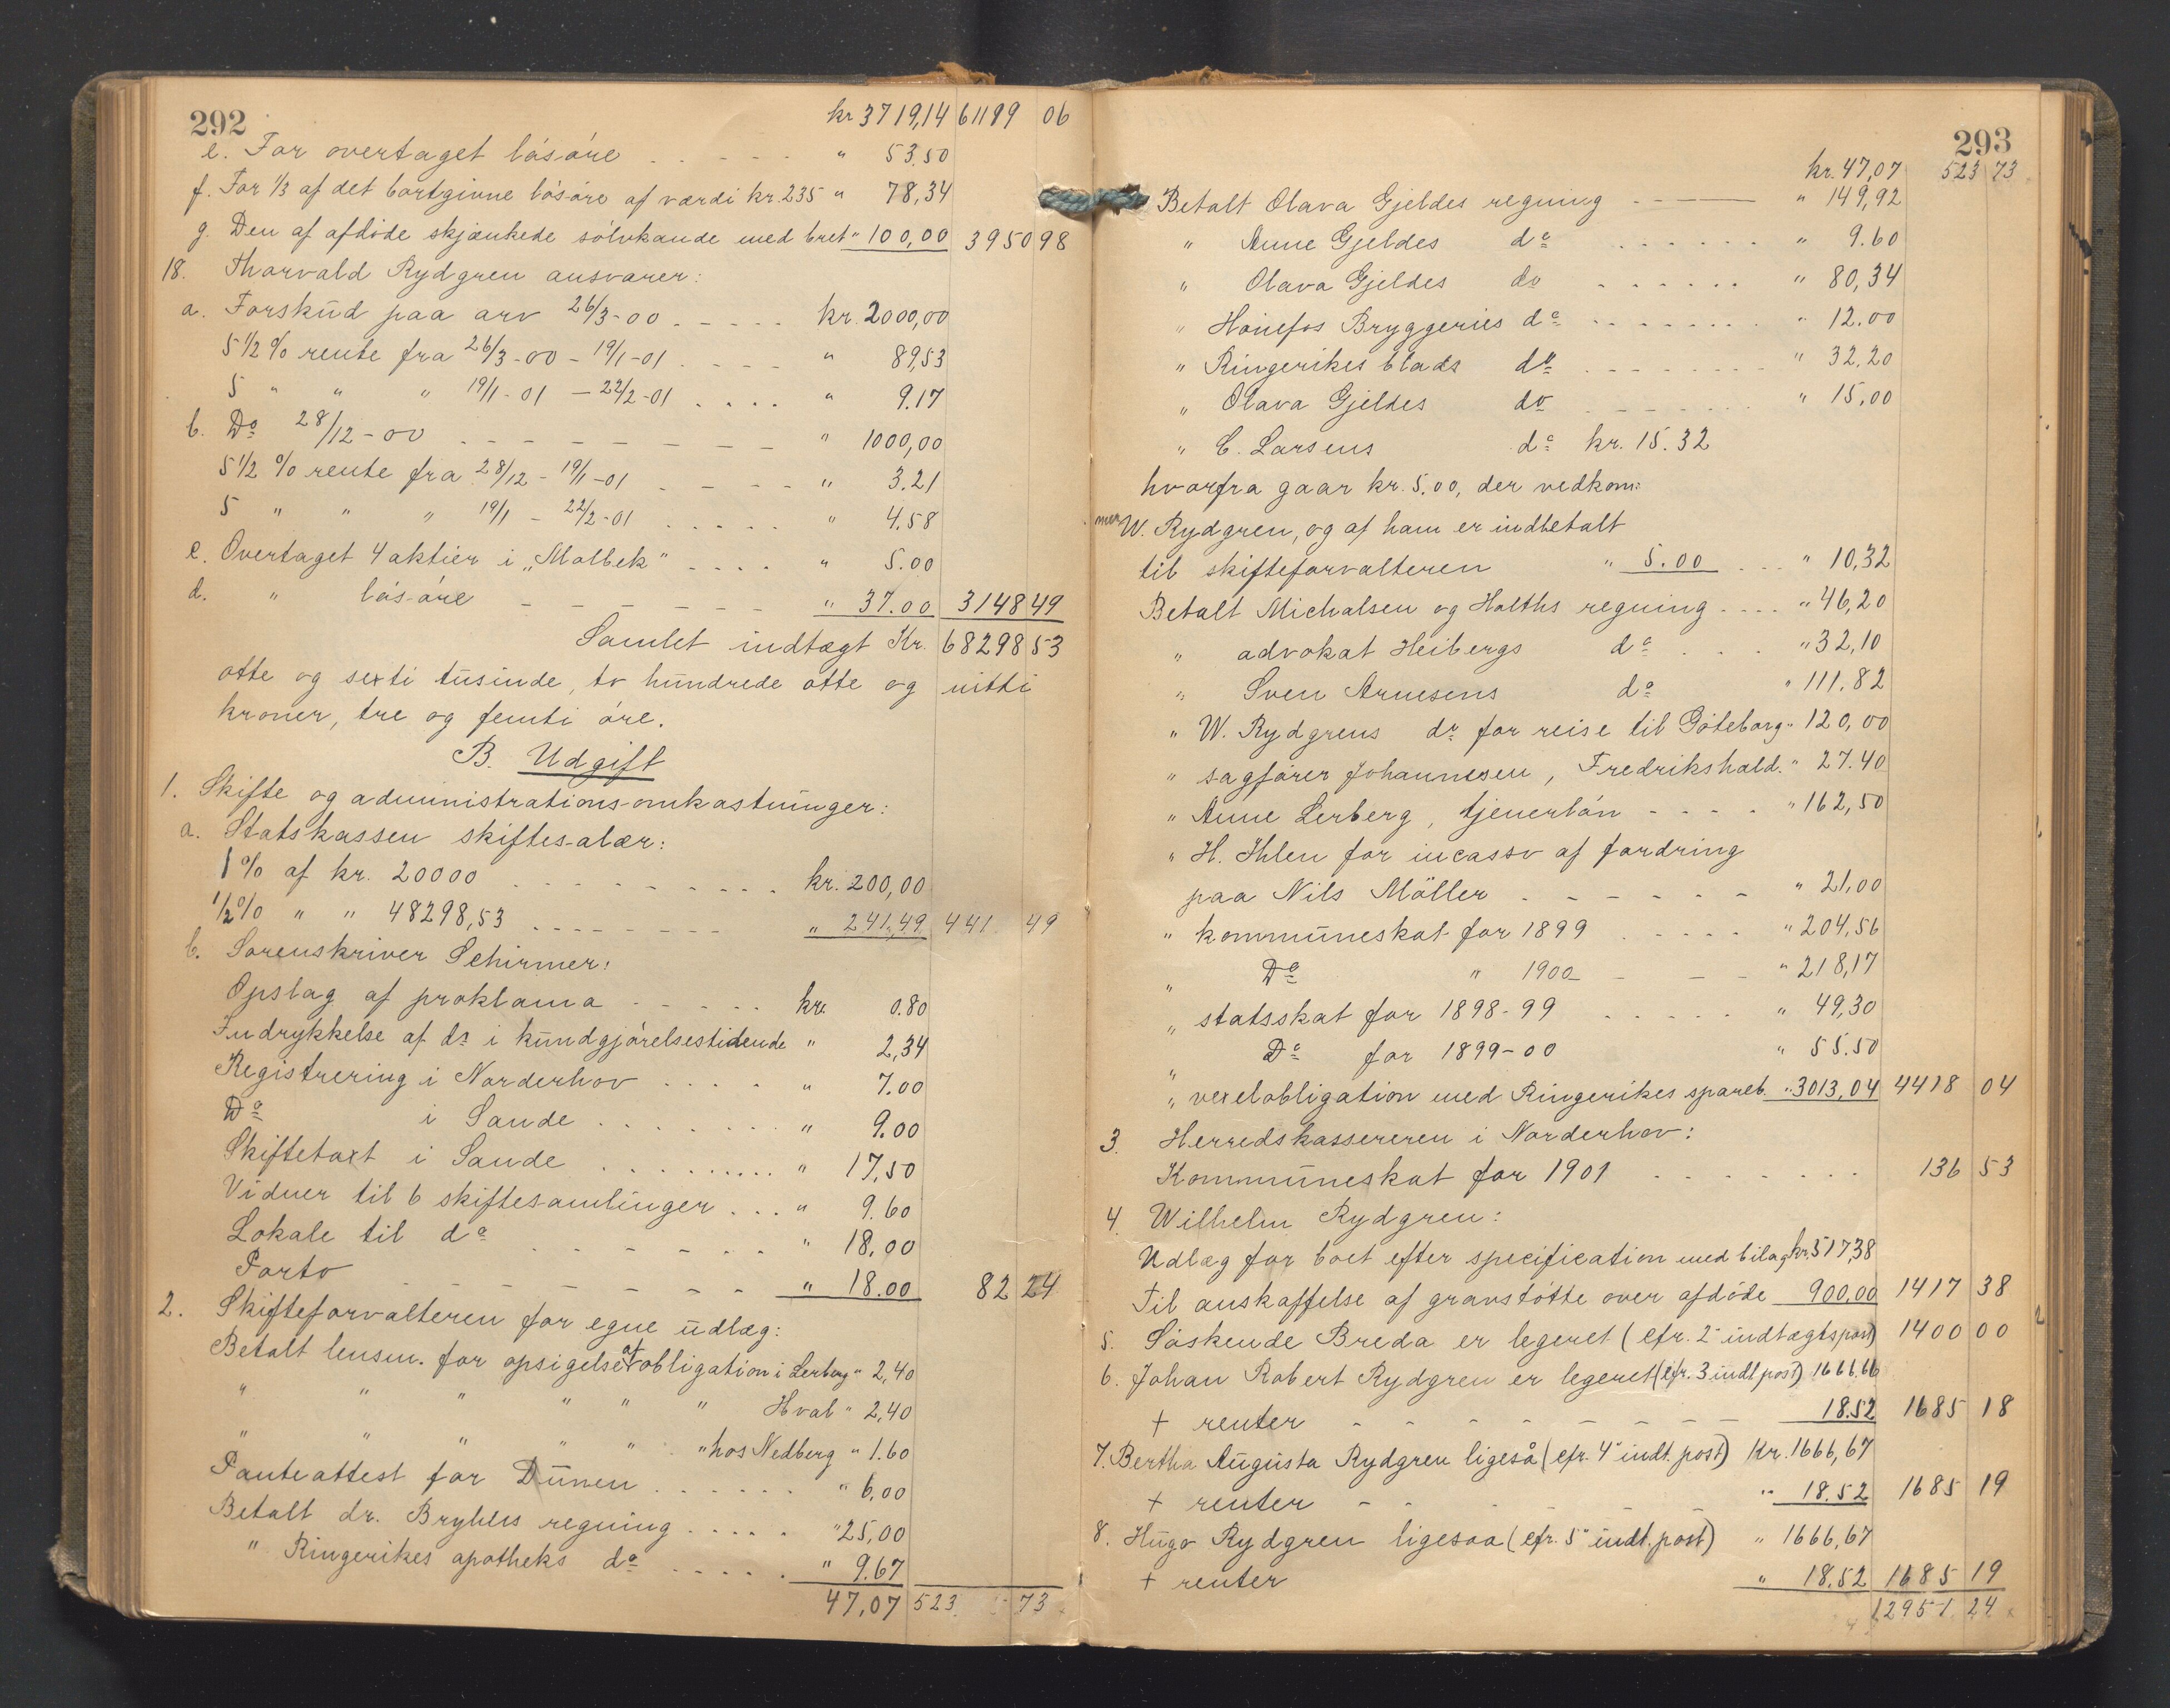 292
kr 3719,14 61199 06
e. For overtaget løsøre . . . . . " 53.50
f. For 1/3 af det bortgivne løsøre af værdi kr. 235 " 78,34
g. Den af afdøde skjænkede sølvkande med bret " 100,00 3950 98
18. Thorvald Rydgren ansvarer:
a. Forskud paa arv 26/3-00 . . . . kr. 2000,00
5 1/2 % rente fra 26/3-00 - 19/1-01 . . . . " 89,53
5 " " " 19/1-01 - 22/2-01 . . . . " 9.17
b. Do 28/12-00 - - - - - - - " 1000,00
5 1/2 % rente fra 28/12 - 19/1-01 - - - - " 3.21
5 " " " 19/1 - 22/2-01 . . . . . " 4.58
c. Overtaget 4 aktier i „Molbek" - - - - " 5.00
d. " løsøre - - - - - - " 37.00 3148 49
Samlet indtægt Kr. 68298 53
otte og sexti tusinde, to hundrede otte og nitti
kroner, tre og femti øre.
B. Udgift
1. Skifte og administrations-omkostninger:
a. Statskassen skiftesalær:
1 % af kr. 20000 . . . . . . . . kr. 200,00
1/2 % " " 48298,53 . . . . . . . . " 241,49 441. 49
b. Sorenskriver Schirmer:
Opslag af proklama - - - - - kr. 0.80
Indrykkelse af do i kundgjørelsestidende " 2,34
Registrering i Norderhov . . . . " 7.00
Do i Sande . . . . . . . . " 9.00
Skiftetaxt i Sande . . . . . . . . . " 17,50
Vidner til 6 skiftesamlinger . . . " 9.60
Lokale til do . . - - - . . " 18,00
Porto - - - - - - - " 18.00 82 24
2. Skifteforvalteren for egne udlæg:
Betalt lensm. for opsigelse af obligation i Lerberg " 2,40
" " " " " " Hval " 2,40
" " " " " " hos Nedberg " 1.60
Panteattest for Dünen . . . . . . " 6,00
Betalt dr. Bryhns regning . . . . . " 25,00
" Ringerikes apotheks do . . . . . " 9.67
47,07 523 73
293
kr. 47,07 523 73
Betalt Olava Gjeldes regning - - - - " 149,92
" Anne Gjeldes do . . . . . . " 9.60
" Olava Gjeldes do - - . . . . " 80,34
" Hønefos Bryggeries do . . . . . . . . " 12.00
" Ringerikes blads do . . . . . . . " 32.20
" Olava Gjeldes do - - - - - - " 15,00
" C. Larsens do kr. 15.32
hvorfra gaar kr. 5.00, der vedkom-
mer W. Rydgren, og af ham er indbetalt
til skifteforvalteren " 5.00 . . . " 10,32
Betalt Michalsen og Holths regning . . . . " 46,20
" advokat Heibergs do . . . " 32,10
" Sven Arnesens do " 111.82
" W. Rydgrens do for reise til Göteborg " 120,00
" sagfører Johannesen, Fredrikshald. " 27.40
" Anne Lerberg, tjenerløn - - - - " 162,50
" H. Ihlen for incasso af fordring
paa Nils Møller . - - - - - " 21,00
" kommuneskat for 1899 . . . . . " 204,56
" Do " 1900 - - - " 218,17
" statsskat for 1898-99 . . . . . " 49,30
" Do for 1899-00 " 55.50
" vexelobligation med Ringerikes spareb. " 3013,04 4418 04
3. Herredskassereren i Norderhov:
Kommuneskat for 1901 . . . . . . . 136 53
4. Wilhelm Rydgren:
Udlæg for boet efter specification med bilag kr. 517,38
Til anskaffelse af gravstøtte over afdøde 900,00 1417 38
5. Søskende Breda er legeret (cfr. 2" indtægtspost) 1400 00
6. Johan Robert Rydgren er legeret (cfr. 3 indt post) 1666.66
+ renter - - - - - - - - 18.52 1685 18
7. Bertha Augusta Rydgren ligeså (cfr. 4" indt. post) Kr. 1666,67
+ renter - - - - - - " 18.52 1685 19
8. Hugo Rydgren ligesaa (cfr. 5" indt. post) " 1666,67
+ renter " 18.52 1685 19
12951 24